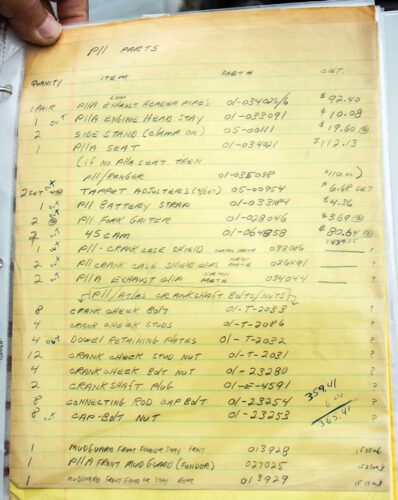 P11 PARTS
QUANITY ITEM PART # COST.
LOW
1 PAIR P11A EXHAUST HEADER PIPES 01-034025/6 $92.40
1 OUT P11A ENGINE HEAD STAY 01-033091 $10.08
2 SIDE STAND (CLAMP ON) 05-00111 $19.60 @
1 P11A SEAT 01-034021 $112.13
(if NO P11A SEAT THEN
P11/RANGER 01-035038
2 SET TAPPET ADJUSTERS (4/SET) 05-00954 $6.68 SET
1 P11 BATTERY STRAP $4.36
2 P11 FORK GAITER 01-028046 $3.69 @
2 4S CAM 01-064858 @
1 P11- CRANK CASE SHIELD NORTON PART# 033086 ?
2 P11 CRANK CASE SHIELD NORTON PART# ?
2 P11A EXHAUST CLIP NORTON PART# 034044 ?
P11/ATLAS CRANKSHAFT BOLTS/NUTS
8 CRANK CHEEK BOLT 01-T-2033 ?
4 CRANK CHEEK STUDS 01-T-2086 ?
4 OUT DOWEL RETAINING PLATES 01-T-2032 ?
12 CRANK CHEEK STUD NUT 01-T-2031 ?
4 CRANK CHEEK BOLT NUT 01-23280 ?
2 CRANKSHAFT PLUG 01-E-4591 ?
8 CONNECTING ROD CAP BOLT 01-23254 ?
8 CAP-BOLT NUT 01-23253 ?
359.41
6.00
365.41
1 MUDGUARD FRONT FENDER STAY FRONT 013928
1 P11A FRONT MUDGUARD (FENDER) 027025
1 MUDGUARD FRONT FENDER STAY REAR 013929